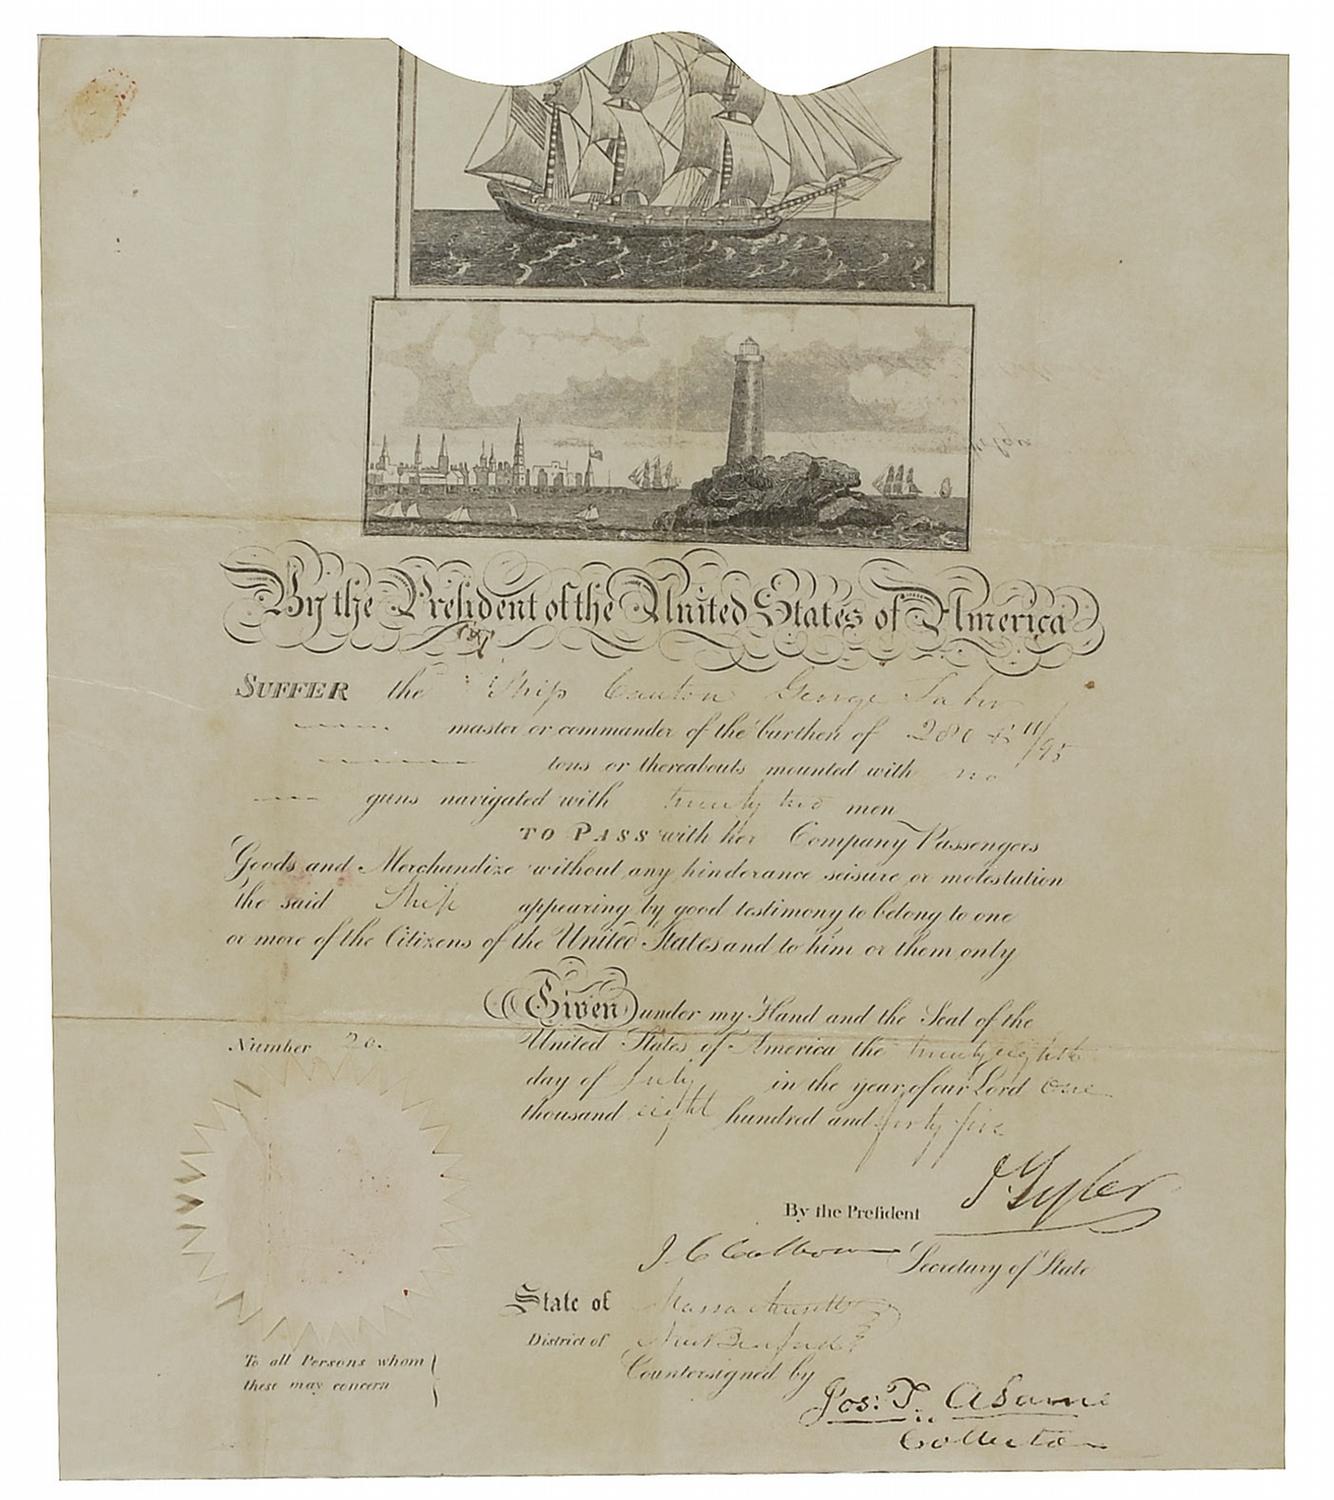 By the President of the United States of America
SUFFER the Ship Canton George Taber
master or commander of the burthen of 280 & 11/95
tons or thereabouts mounted with no
guns navigated with twenty two men
TO PASS with her Company Passengers
Goods and Merchandize without any hinderance seisure or molestation
the said Ship appearing by good testimony to belong to one
or more of the Citizens of the United States and to him or them only
Given under my Hand and the Seal of the
United States of America the twenty eighth
day of July in the year of our Lord one
thousand eight hundred and forty five
Number 20.
By the President J Tyler
J C Calhoun Secretary of State
State of Massachusetts
District of New Bedford
Countersigned by
Jos: T. Adams
Collector
To all Persons whom
these may concern